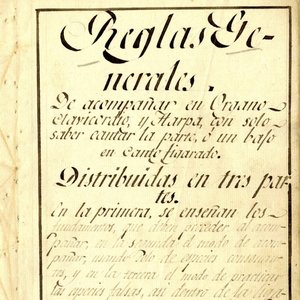 Reglas Ge-
nerales.
De acompañar en Organo
Clavicordio, y Harpa, con solo
saber cantar la parte, ó un bajo
en Canto figurado.
Distribuidas en tres par
tes.
En la primera, se enseñan los
fundamentos, que deben preceder al acom
pañar, en la segunda el modo de acom
pañar, usando solo de especies consonan
tes, y en la tercera el modo de practicar
las especies falsas, assi dentro de la